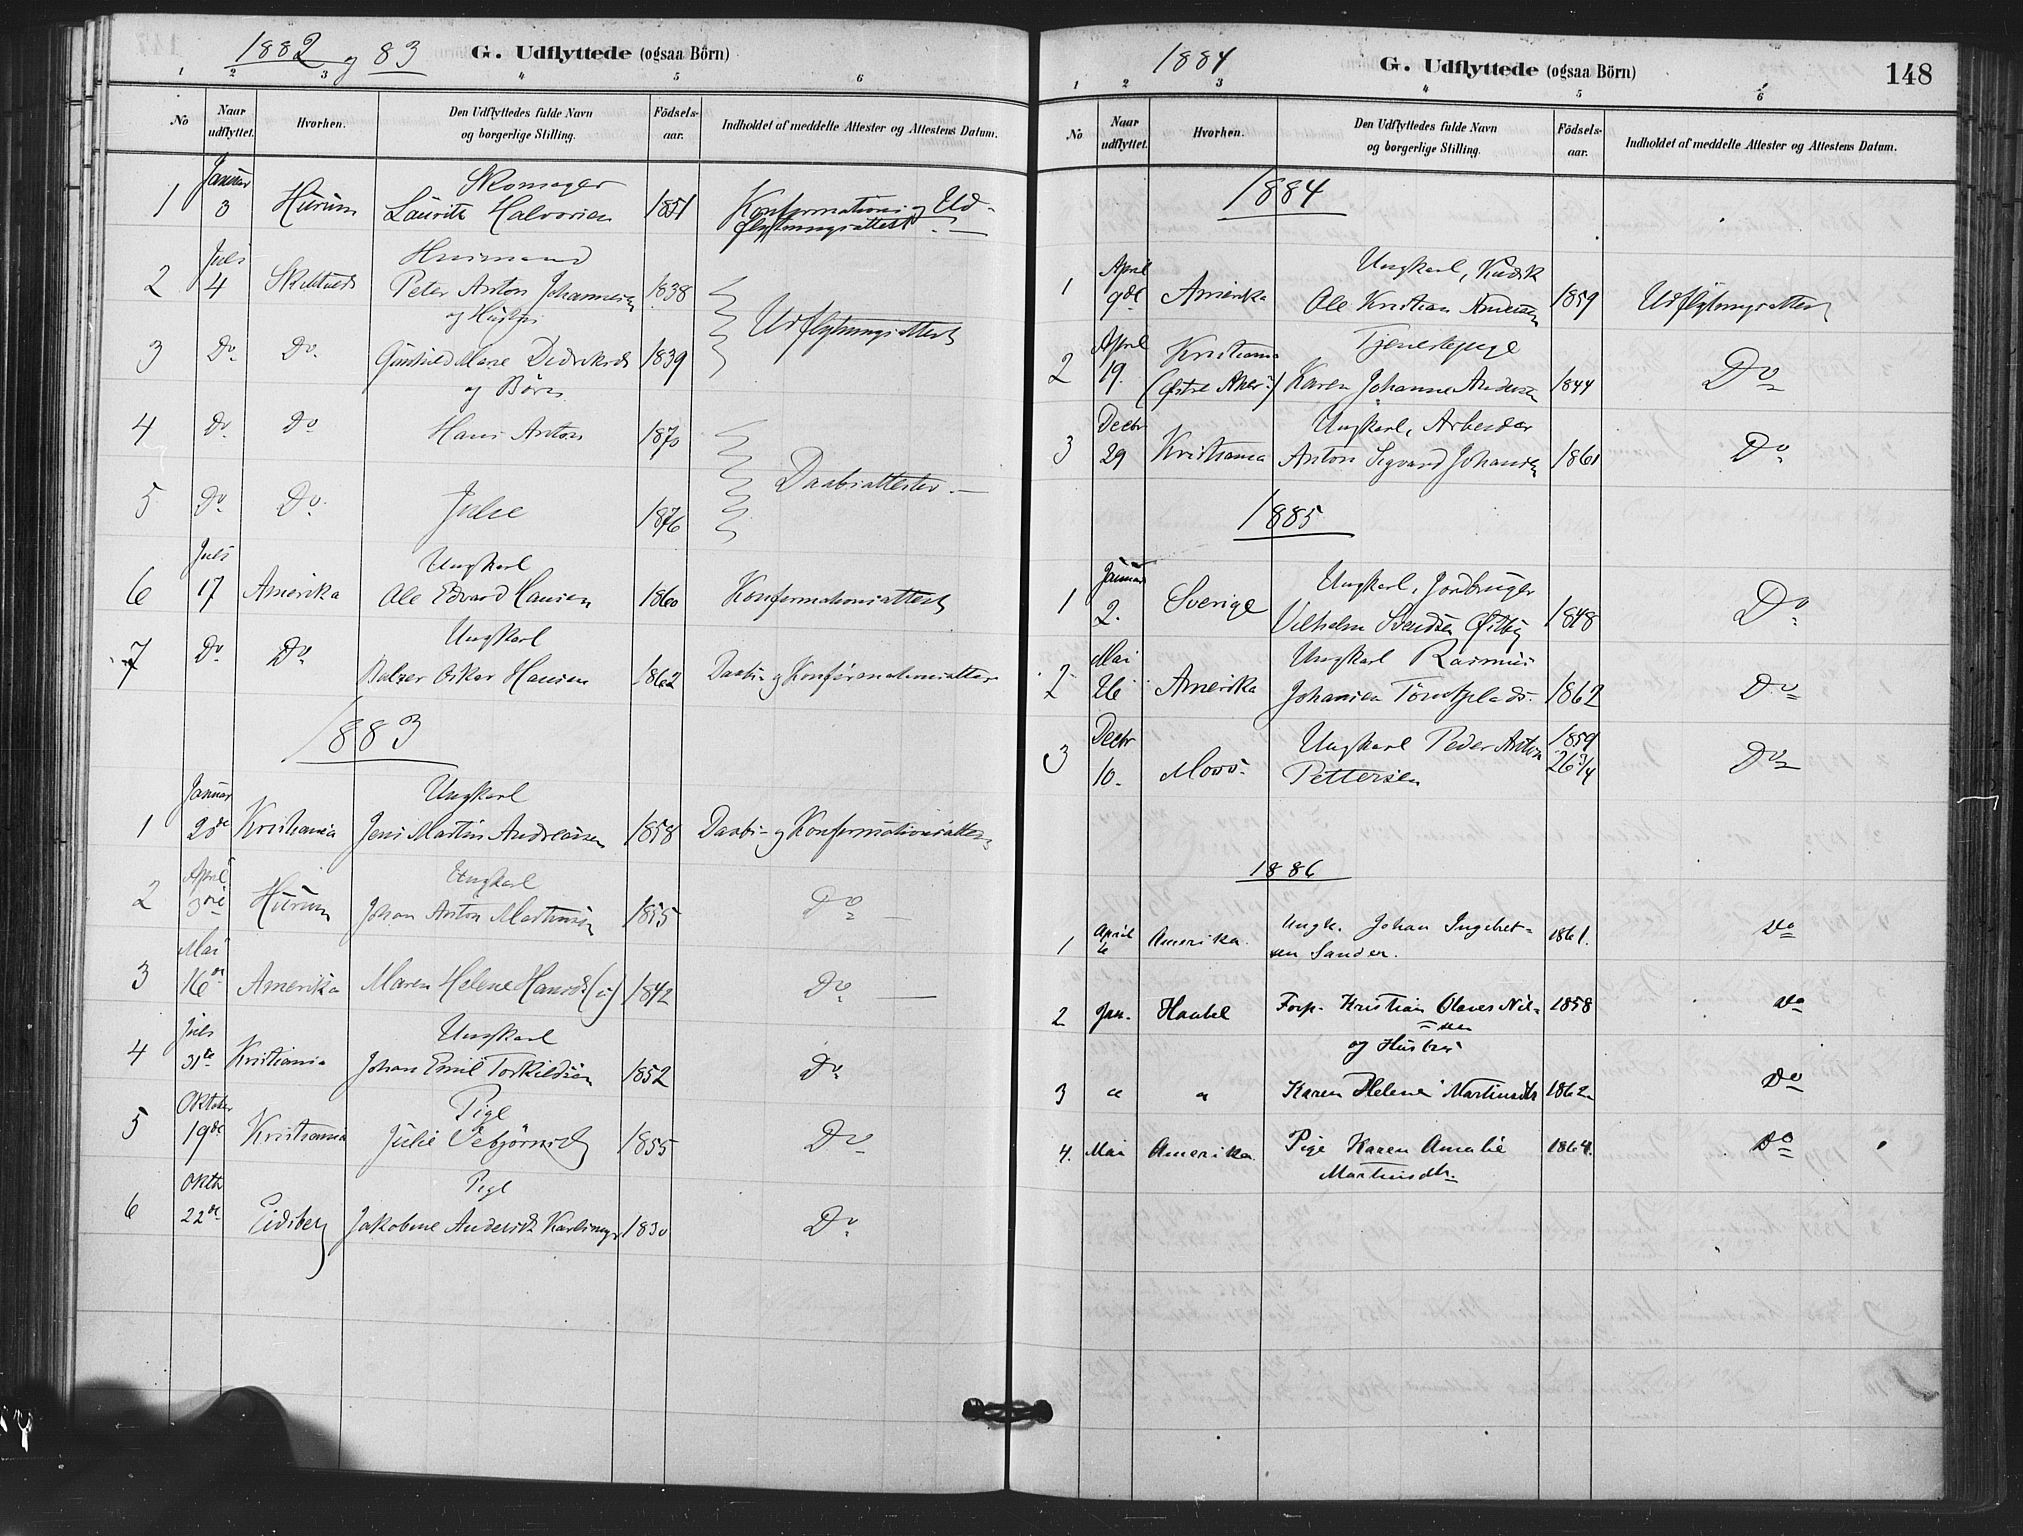 1882 og 83
G. Udflyttede (ogsaa Börn)
1 2 3 4 5 6
No
Naar udflyttet.
Hvorhen.
Den Udflyttedes fulde Navn og borgerlige Stilling.
Födsels-aar.
Indholdet af meddelte Attester og Attestens Datum.
Januar Skomager
1 3 Hurum Lauritz Halvorsen 1851 Konfirmations og Ud-
flytningsattest
Juli Husmand
2 4 Skibtvedt Peter Anton Johannesen 1838
og Hustru Udflytningsattest
3 Do Do Gunhild Marie Didriksd 1839
og Børn
4 Do Do Hans Anton 1870
Daabsattester
5 Do Do Julie 1876
Juli Ungkarl
6 17 Amerika Ole Edvard Hansen 1860 Konfirmationsattest
Ungkarl
7 Do Do Oskar Hansen 1862 Daabs- og Konfirmationsattest
1883
Januar Ungkarl
1 Kristiania Jens Martin Andreassen 1858 Daabs- og Konfirmationsattest
April Ungkarl
2 3die Hurum Johan Anton Martinsen 1855 Do
Mai
3 16de Amerika Maren Helene Hansd (u) 1842 Do
Juli Ungkarl
4 31te Kristiania Johan Emil Torkildsen 1852 Do
Oktober Pige
5 19de Kristiania Julie 1855 Do
Oktb Pige
6 22de Eidsberg Jakobine Andersdt 1830 Do
1884
G. Udflyttede (ogsaa Börn)
148
1 2 3 4 5 6
No
Naar udflyttet.
Hvorhen.
Den Udflyttedes fulde Navn og borgerlige Stilling.
Födsels-aar.
Indholdet af meddelte Attester og Attestens Datum.
1884
April Ungkarl, Kudsk
1 9de Amerika Ole Kristian Andersen 1859 Udflytningsattest
April Kristiania Tjenestepige
2 19. (Østre Aker) Karen Johanne Andersen 1844 Do
Decbr Ungkarl, Arbeider
3 29 Kristiania Anton Sigvard Johansen 1861 Do
1885
Januar Ungkarl, Jordbruger
1 2. Sverige Vilhelm Svendsen Østby 1848 Do
Mai Ungkarl Rasmus
2 26 Amerika Johansen 1862 Do
Decbr Ungkarl Peder Anton 1859
3 10. Moss Pettersen 26 3/4 Do
1886
1 April Amerika. Ungk. Johan Ingebret- 1861. Do
6 sen Sander.
2 Jan. Haabøl Forp. Kristian Olaves Nil- 1858 Do
sen
og Hustru
3 " " Karen Helene Martinsdtr 1862 Do
4. Mai Amerika. Pige Karen Amalie 1864. Do
Martinsdtr.